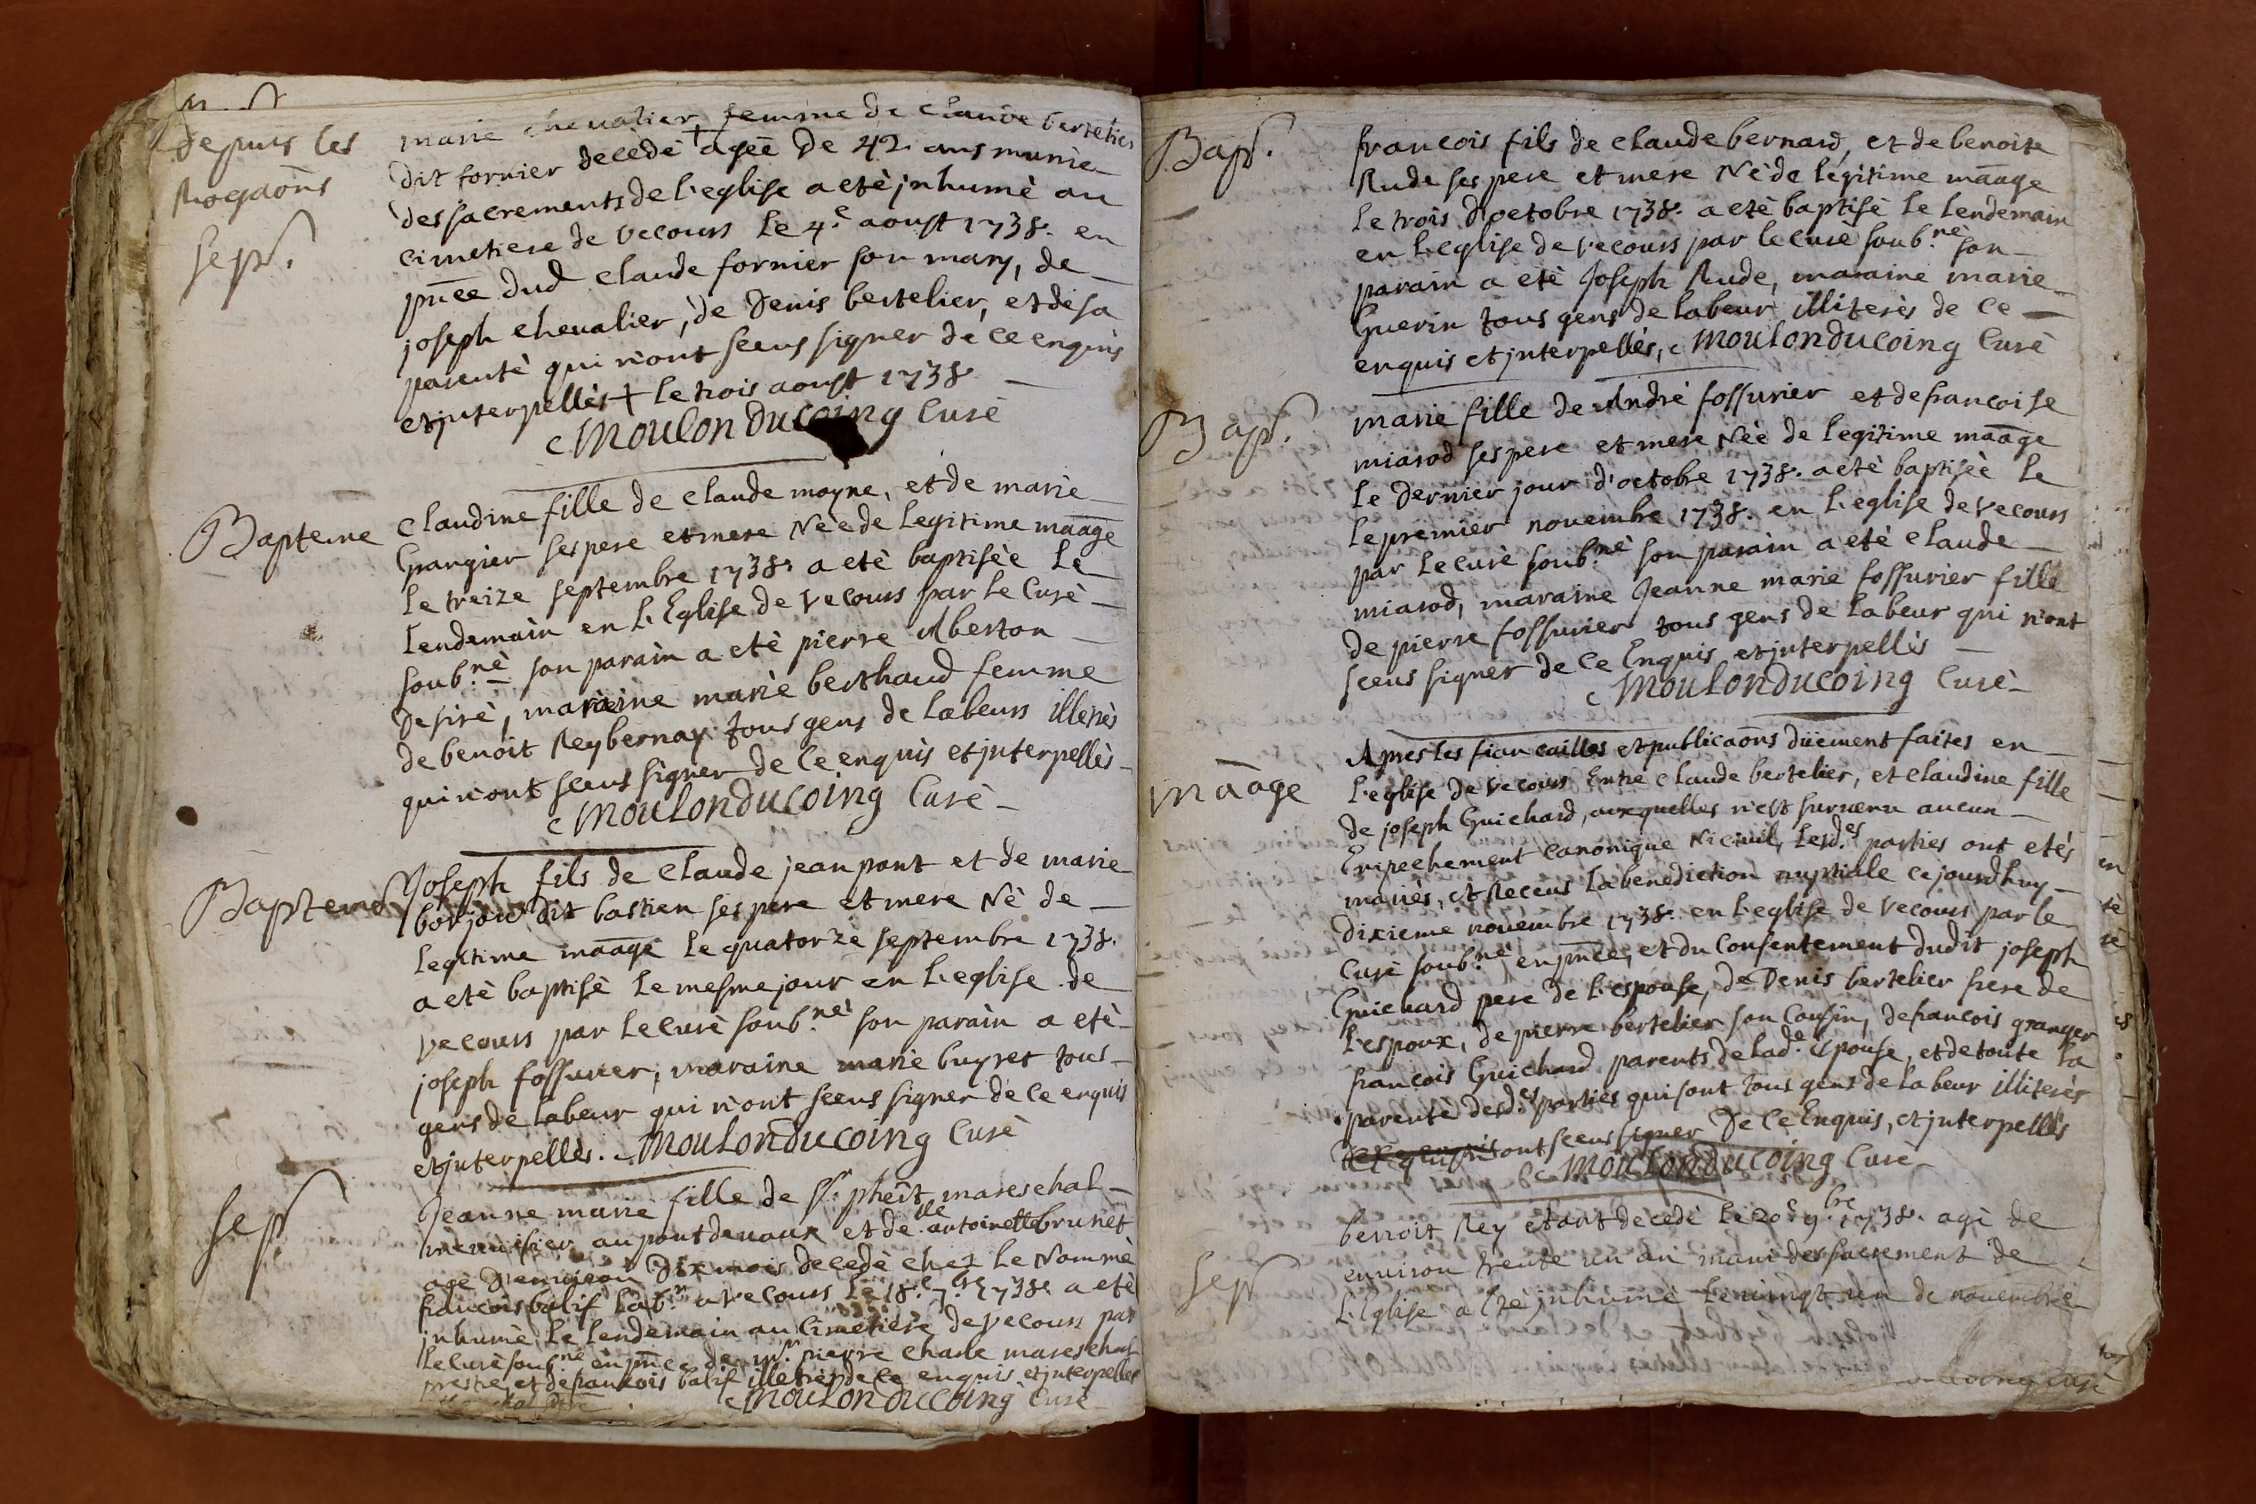 Depuis les
Rogãons
Sep.
marie chevalier femme de claude bertelier
dit fornier decedé + agée De 42. ans munie
des sacrements de l'eglise a eté jnhumé au
cimetiere de vecours le 4.e aoust 1738. en
pñce dud claude fornier son mary, de
joseph chevalier, de Denis bertelier, et de sa
parenté qui n'ont sceus signer de ce enquis
et jnterpellés + le trois aoust 1738
Moulonducoing Curé
Bapteme
Claudine fille de claude moyne, et de marie
Grangier ses pere et mere Née de legitime mããge
le treize septembre 1738. a eté baptisée Le
lendemain en L'Eglise de vecours par le Curé
soub.né son parain a eté pierre Aberton
Desiré, maraine marie berthaud femme
de benoit Reybernay tous gens de labeurs illetrés
qui n'ont sceus signer de ce enquis et jnterpellés
Moulonducoing Curé
Bapteme
Joseph fils de Claude jeanpont et de marie
borjon dit bastien ses pere et mere Né de
legitime mããge le quatorze septembre 1738.
a eté baptisé le mesme jour en l'eglise de
vecours par le curé soub.né son parain a eté
joseph fossurier, maraine marie buyret tous
gens de labeur qui n'ont sceus signer de ce enquis
et jnterpellés. Moulonducoing Curé
Sep
Jeanne marie fille de Sr. phẽit mareschal
menuisier au pontdevaux et de lle antoinette brunet
agé D'environ Dix mois decedé chez le Nommé
francois balif lab.r a vecours le 18.e 7.bre 1738. a eté
jnhumé le lendemain au Cimetiere de vecours par
le curé soub.né en pñce de m.r pierre charle mareschal
prestre, et de francois balif illetrés de ce enquis et jnterpellés
Moulonducoing Curé
Bap.
francois fils de claude bernard, et de benoite
Rude ses pere et mere Né de legitime mããge
le trois d'octobre 1738. a eté baptisé le lendemain
en l'eglise de vecours par le curé soub.né son
parain a eté Joseph Rude, maraine marie
Guerin tous gens de labeur illiterés de ce
enquis et jnterpellés, Moulonducoing Curé
Bap.
marie fille de André fossurier et de francoise
miarod ses pere et mere Née de legitime mããge
le dernier jour d'octobre 1738. a eté baptisée le
le premier novembre 1738. en l'eglise de vecours
par le curé soub.né son parain a eté claude
miarod, maraine Jeanne marie fossurier fille
de pierre fossurier tous gens de labeur qui n'ont
sceus signer de ce Enquis, et jnterpellés
Moulonducoing Curé
mããge
Apres les fiancailles et publicãons düement faites en
l'eglise de vecours Entre claude bertelier, et claudine fille
de joseph Guichard, auxquelles n'est survenu aucun
Empechement canonique Ni civil, Lesd.es parties ont etés
mariés, et Receus la benediction nuptiale ce jourd'huy
dixieme novembre 1738. en l'eglise de vecours par le
Curé soub.né en pñce, et du Consentement dudit joseph
Guichard pere de l'espouse, de Denis bertelier frere de
l'espoux, de pierre bertelier son Cousin, de francois granger
francois Guichard parents de lad.e Epouse, et de toute la
parenté desd.es parties qui sont tous gens de labeur illiterés
ont sceus signer De ce Enquis, et jnterpellés
Moulonducoing Curé
Sep
benoit Rey etant decedé le 20.e 9.bre 1738. agé de
environ trente un an muni des sacrement de
l'Eglise a eté jnhumé le vingt un de novembre
Curé